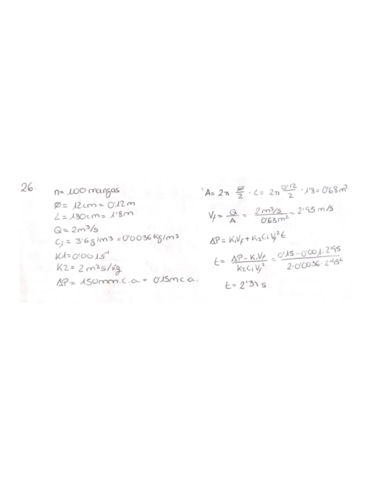 26.
n = 100 mangas
Ø = 12cm = 0'12m
L = 180cm = 1'8m
Q = 2m³/s
Ci = 3'6g/m³ = 0'0036kg/m³
K1 = 0'001 s⁻¹
K2 = 2 m²s/kg
ΔP = 150mm.c.a = 0'15m c.a.
A = 2π Ø/2 · L = 2π 0'12/2 · 1'8 = 0'68 m²
Vf = Q/A = 2m³/s / 0'68m² = 2'95 m/s
ΔP = K1Vf + K2CiVf²t
t = ΔP - K1Vf / K2CiVf² = 0'15 - 0'001 · 2'95 / 2 · 0'0036 · 2'95²
t = 2'35 s